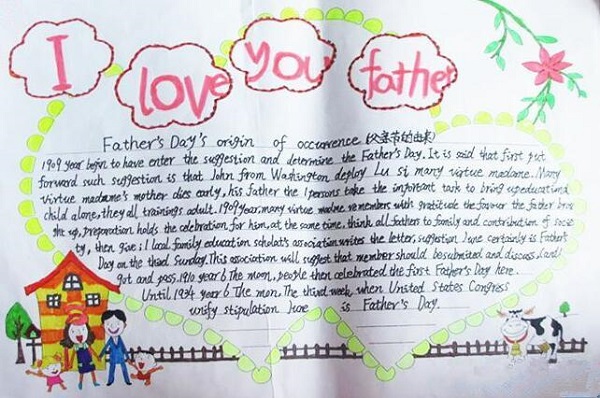 I love you father
Father's Day's origin of occurrence (父亲节的由来)
1909 year begin to have enter the suggestion and determine the Father's Day. It is said that first put
forward such suggestion is that John from Washington deploy Lu si many virtue madame. Many
virtue madame's mother dies early, his father the 1 persons take the important task to bring up educational
child alone, they all trainings adult. 1909 year, many virtue madme remembers with gratitude the favour the father
she up, preparation holds the celebration for him, at the same time, think all fathers to family and contribution of socie
ty, then give; 1 local family education scholat's association writes the letter, suggestion June certainly is Father's
Day on the third Sunday. This association will suggest that member should be submited and discuss, (and
got and pass. 1910 year 6 The mon, people then celebrated the first Father's Day here.
Until 1934 year 6 The mon. The third week when United States Congress
unify stipulation June is Father's Day.